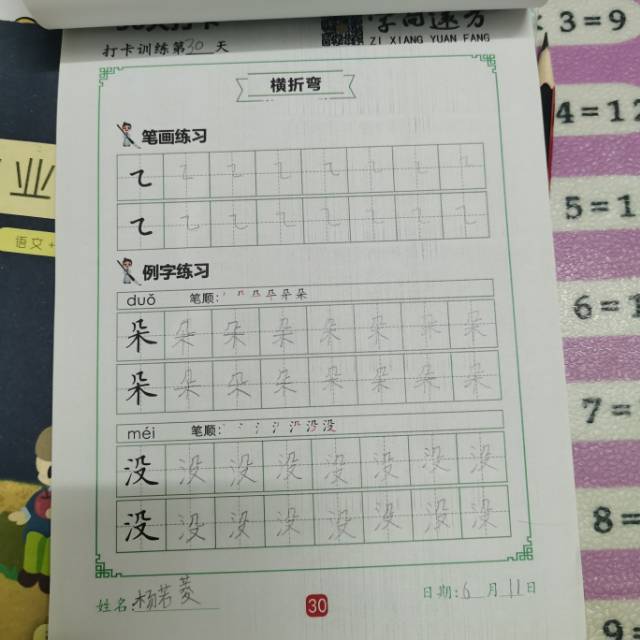 打卡训练第30天
ZI XIANG YUAN FANG
横折弯
笔画练习
例字练习
duǒ 笔顺:
朵 朵 朵 朵 朵 朵 朵 朵
朵 朵 朵 朵 朵 朵 朵 朵
méi 笔顺:
没 没 没 没 没 没 没 没
没 没 没 没 没 没 没 没
姓名 杨若菱 30 日期: 6月11日
业
语文
3=9
4=12
5=1
6=1
7=
8=
9=